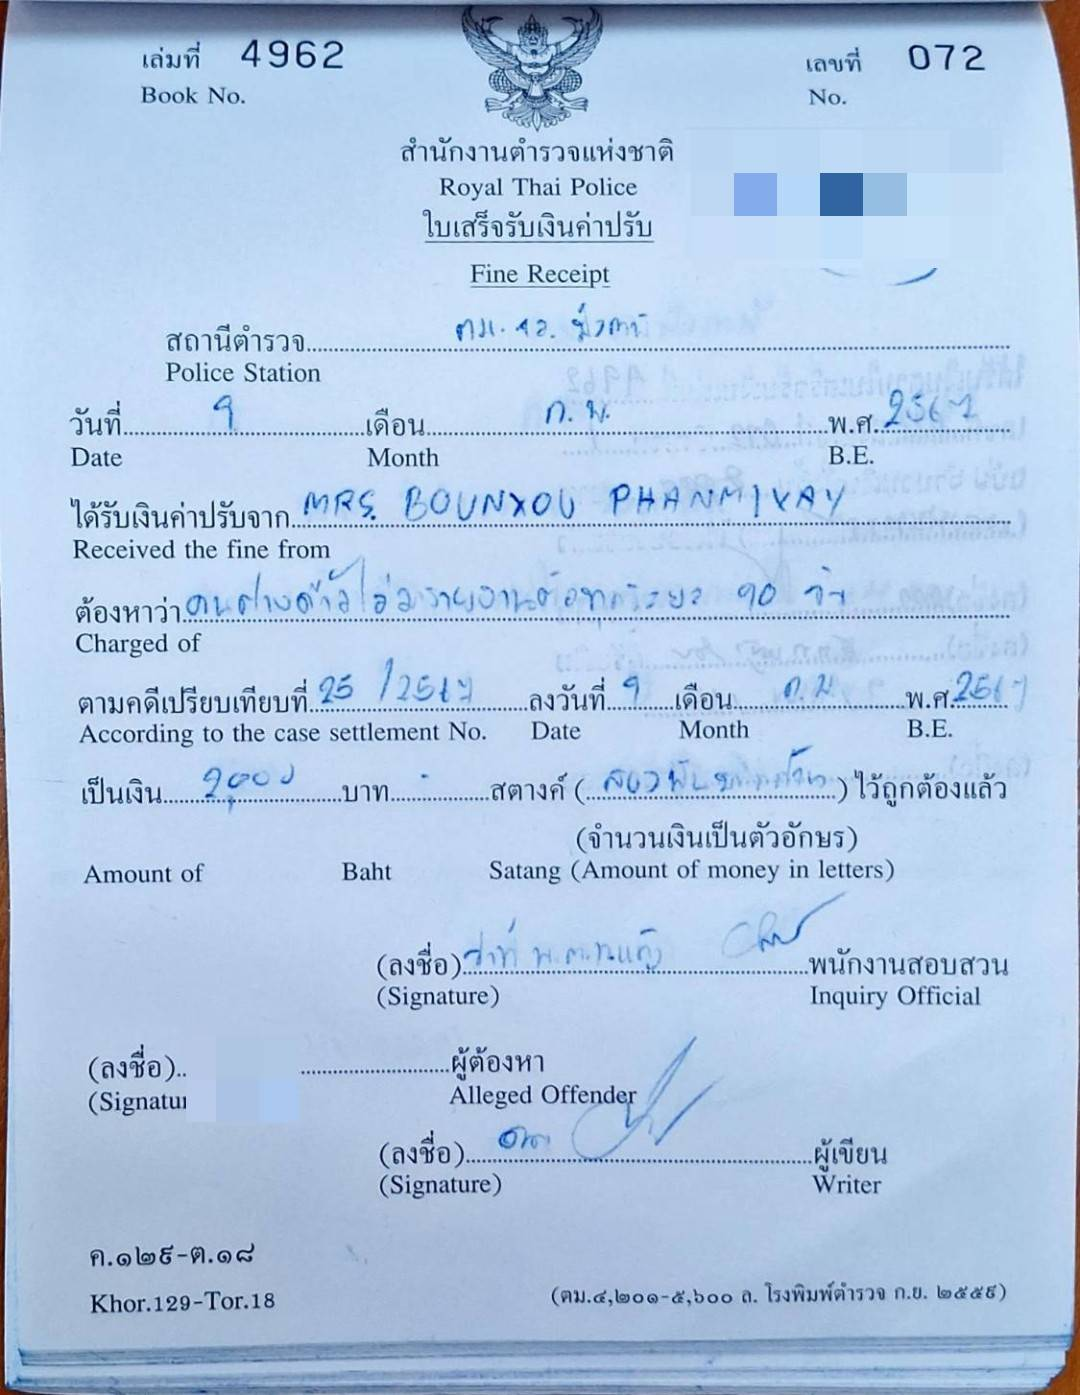 เล่มที่ 4962 เลขที่ 072
Book No. No.
สำนักงานตำรวจแห่งชาติ
Royal Thai Police
ใบเสร็จรับเงินค่าปรับ
Fine Receipt
สถานีตำรวจ ตม. จว. บึงกาฬ
Police Station
วันที่ 9 เดือน ก.พ. พ.ศ. 2567
Date Month B.E.
ได้รับเงินค่าปรับจาก MRS. BOUNXOU PHANMIXAY
Received the fine from
ต้องหาว่า คนต่างด้าวไม่มารายงานตัวทุกระยะ 90 วัน
Charged of
ตามคดีเปรียบเทียบที่ 25 / 2567 ลงวันที่ 9 เดือน ก.พ พ.ศ. 2567
According to the case settlement No. Date Month B.E.
เป็นเงิน 2,000 บาท - สตางค์ ( สองพันบาทถ้วน ) ไว้ถูกต้องแล้ว
(จำนวนเงินเป็นตัวอักษร)
Amount of Baht Satang (Amount of money in letters)
(ลงชื่อ) ว่าที่ พ.ต.ท.หญิง พนักงานสอบสวน
(Signature) Inquiry Official
(ลงชื่อ) ผู้ต้องหา
(Signatu Alleged Offender
(ลงชื่อ) ผู้เขียน
(Signature) Writer
ค.๑๒๙-ต.๑๘
Khor.129-Tor.18 (ตม.๔,๒๐๑-๕,๖๐๐ ล. โรงพิมพ์ตำรวจ ก.ย. ๒๕๕๙)